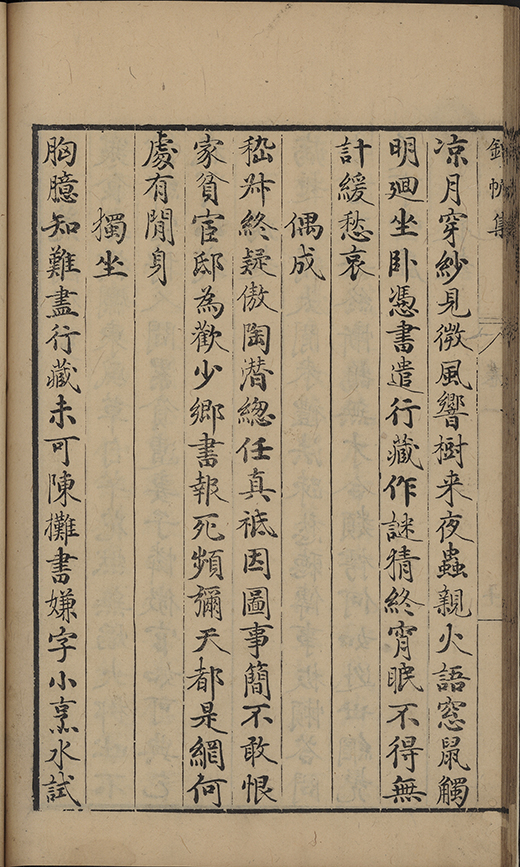 涼月穿紗見微風響樹来夜蟲親火語窓鼠觸
明廻坐卧憑書遣行藏作謎猜終宵眠不得無
計緩愁哀
偶成
嵇𣁽終疑傲陶潜緫任真祗因圖事簡不敢恨
家貧宦邸為歡少鄉書報死頻彌天都是網何
處有閒身
獨坐
胸臆知難盡行藏未可陳攤書嫌字小烹水試